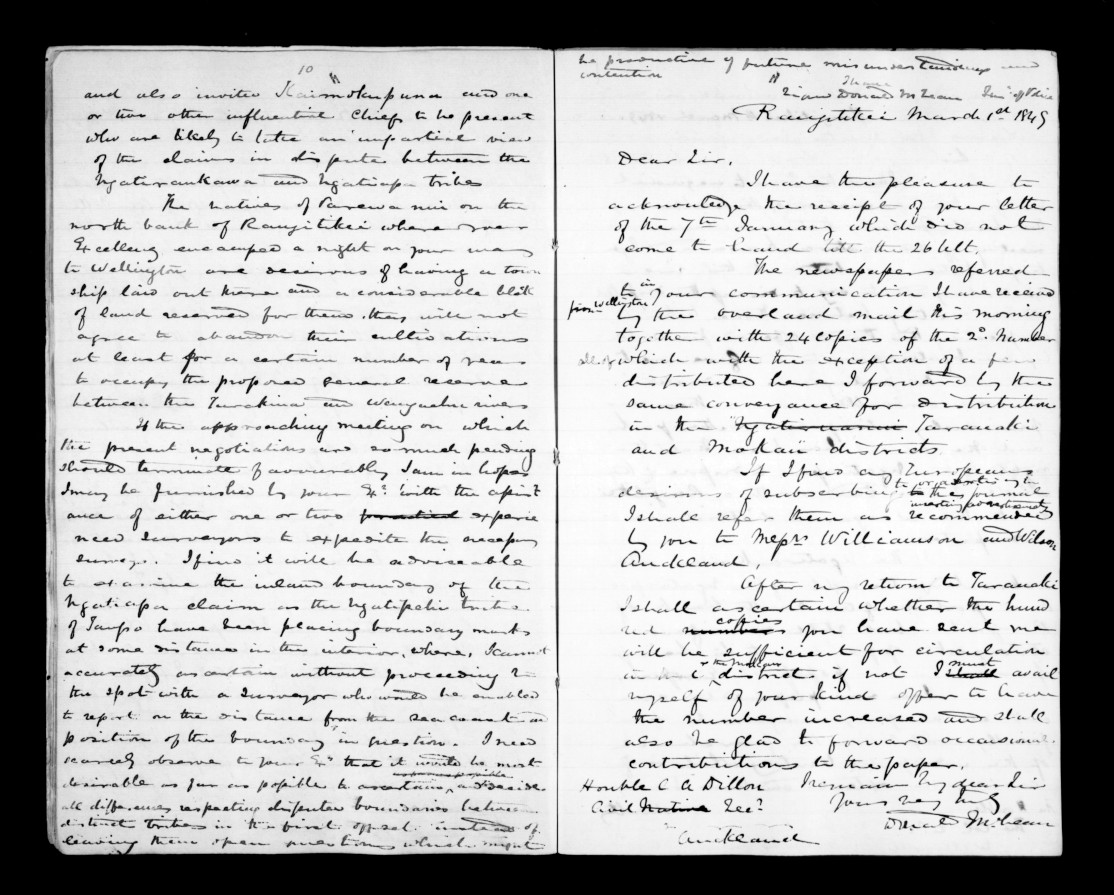 10
and also invite Kaimokupuna and one
or two other influential Chiefs to be present
who are likely to take an impartial view
of the claims in dispute between the
Ngatiraukawa and Ngatiapa tribes
The natives of Parewa nui on the
north bank of Rangitikei where your
Excellency encamped a night on your way
to Wellington are desirous of having a town
ship laid out there and a considerable block
of land reserved for them. they will not
agree to abandon their cultivations
at least for a certain number of years
to occupy the proposed general reserve
between the Turakina and Wangaehu rivers
If the approaching meeting on which
the present negotiations are so much pending
should terminate favourably I am in hopes
I may be furnished by your Exy with the assist
ance of either one or two practical experie
nced surveyors to expedite the necessary
surveys. I find it will be adviseable
to examine the inland boundary of the
Ngatiapa claim as the Ngatipehi tribe
of Taupo have been placing boundary marks
at some distance in the interior, where, I cannot
accurately ascertain without proceeding to
the spot with a surveyor who would be enabled
to report on the distance from the sea coast and
position of the boundary in question. I need
scarcely observe to your Exy that it would be most
desirable as far as possible to ascertain, and decide
all differences respecting disputed boundaries between
distinct tribes in the first offset instead of
leaving them open questions which might
be productive of future misunderstandings and
contention
I have
Sigd Donald McLean Insr. of Police
Rangitikei March 1st 1849
Dear Sir,
I have the pleasure to
acknowledge the receipt of your letter
of the 7th January which did not
come to hand till the 26 Ult.
The newspapers referred
to in your communication I have received
from Wellington by the overland mail this morning
together with 24 copies of the 2d. Number
which with the exception of a few
distributed here I forward by the
same conveyance for distribution
in the Ngatiruanui Taranaki
and Mokau districts.
If I find any Europeans
desirous of subscribing to the journal
or advertising in
I shall refer them as recommended
by you to Messrs Williamson and Wilson
Auckland.
After my return to Taranaki
I shall ascertain whether the hund
red numbers copies you have sent me
will be sufficient for circulation
in the districts if not I shall must avail
myself of your kind offer to have
the number increased and shall
also be glad to forward occasional
contributions to the paper.
Honble C A Dillon I remain My dear Sir
Civil Native Secy Yours very truly
Donald McLean
Auckland